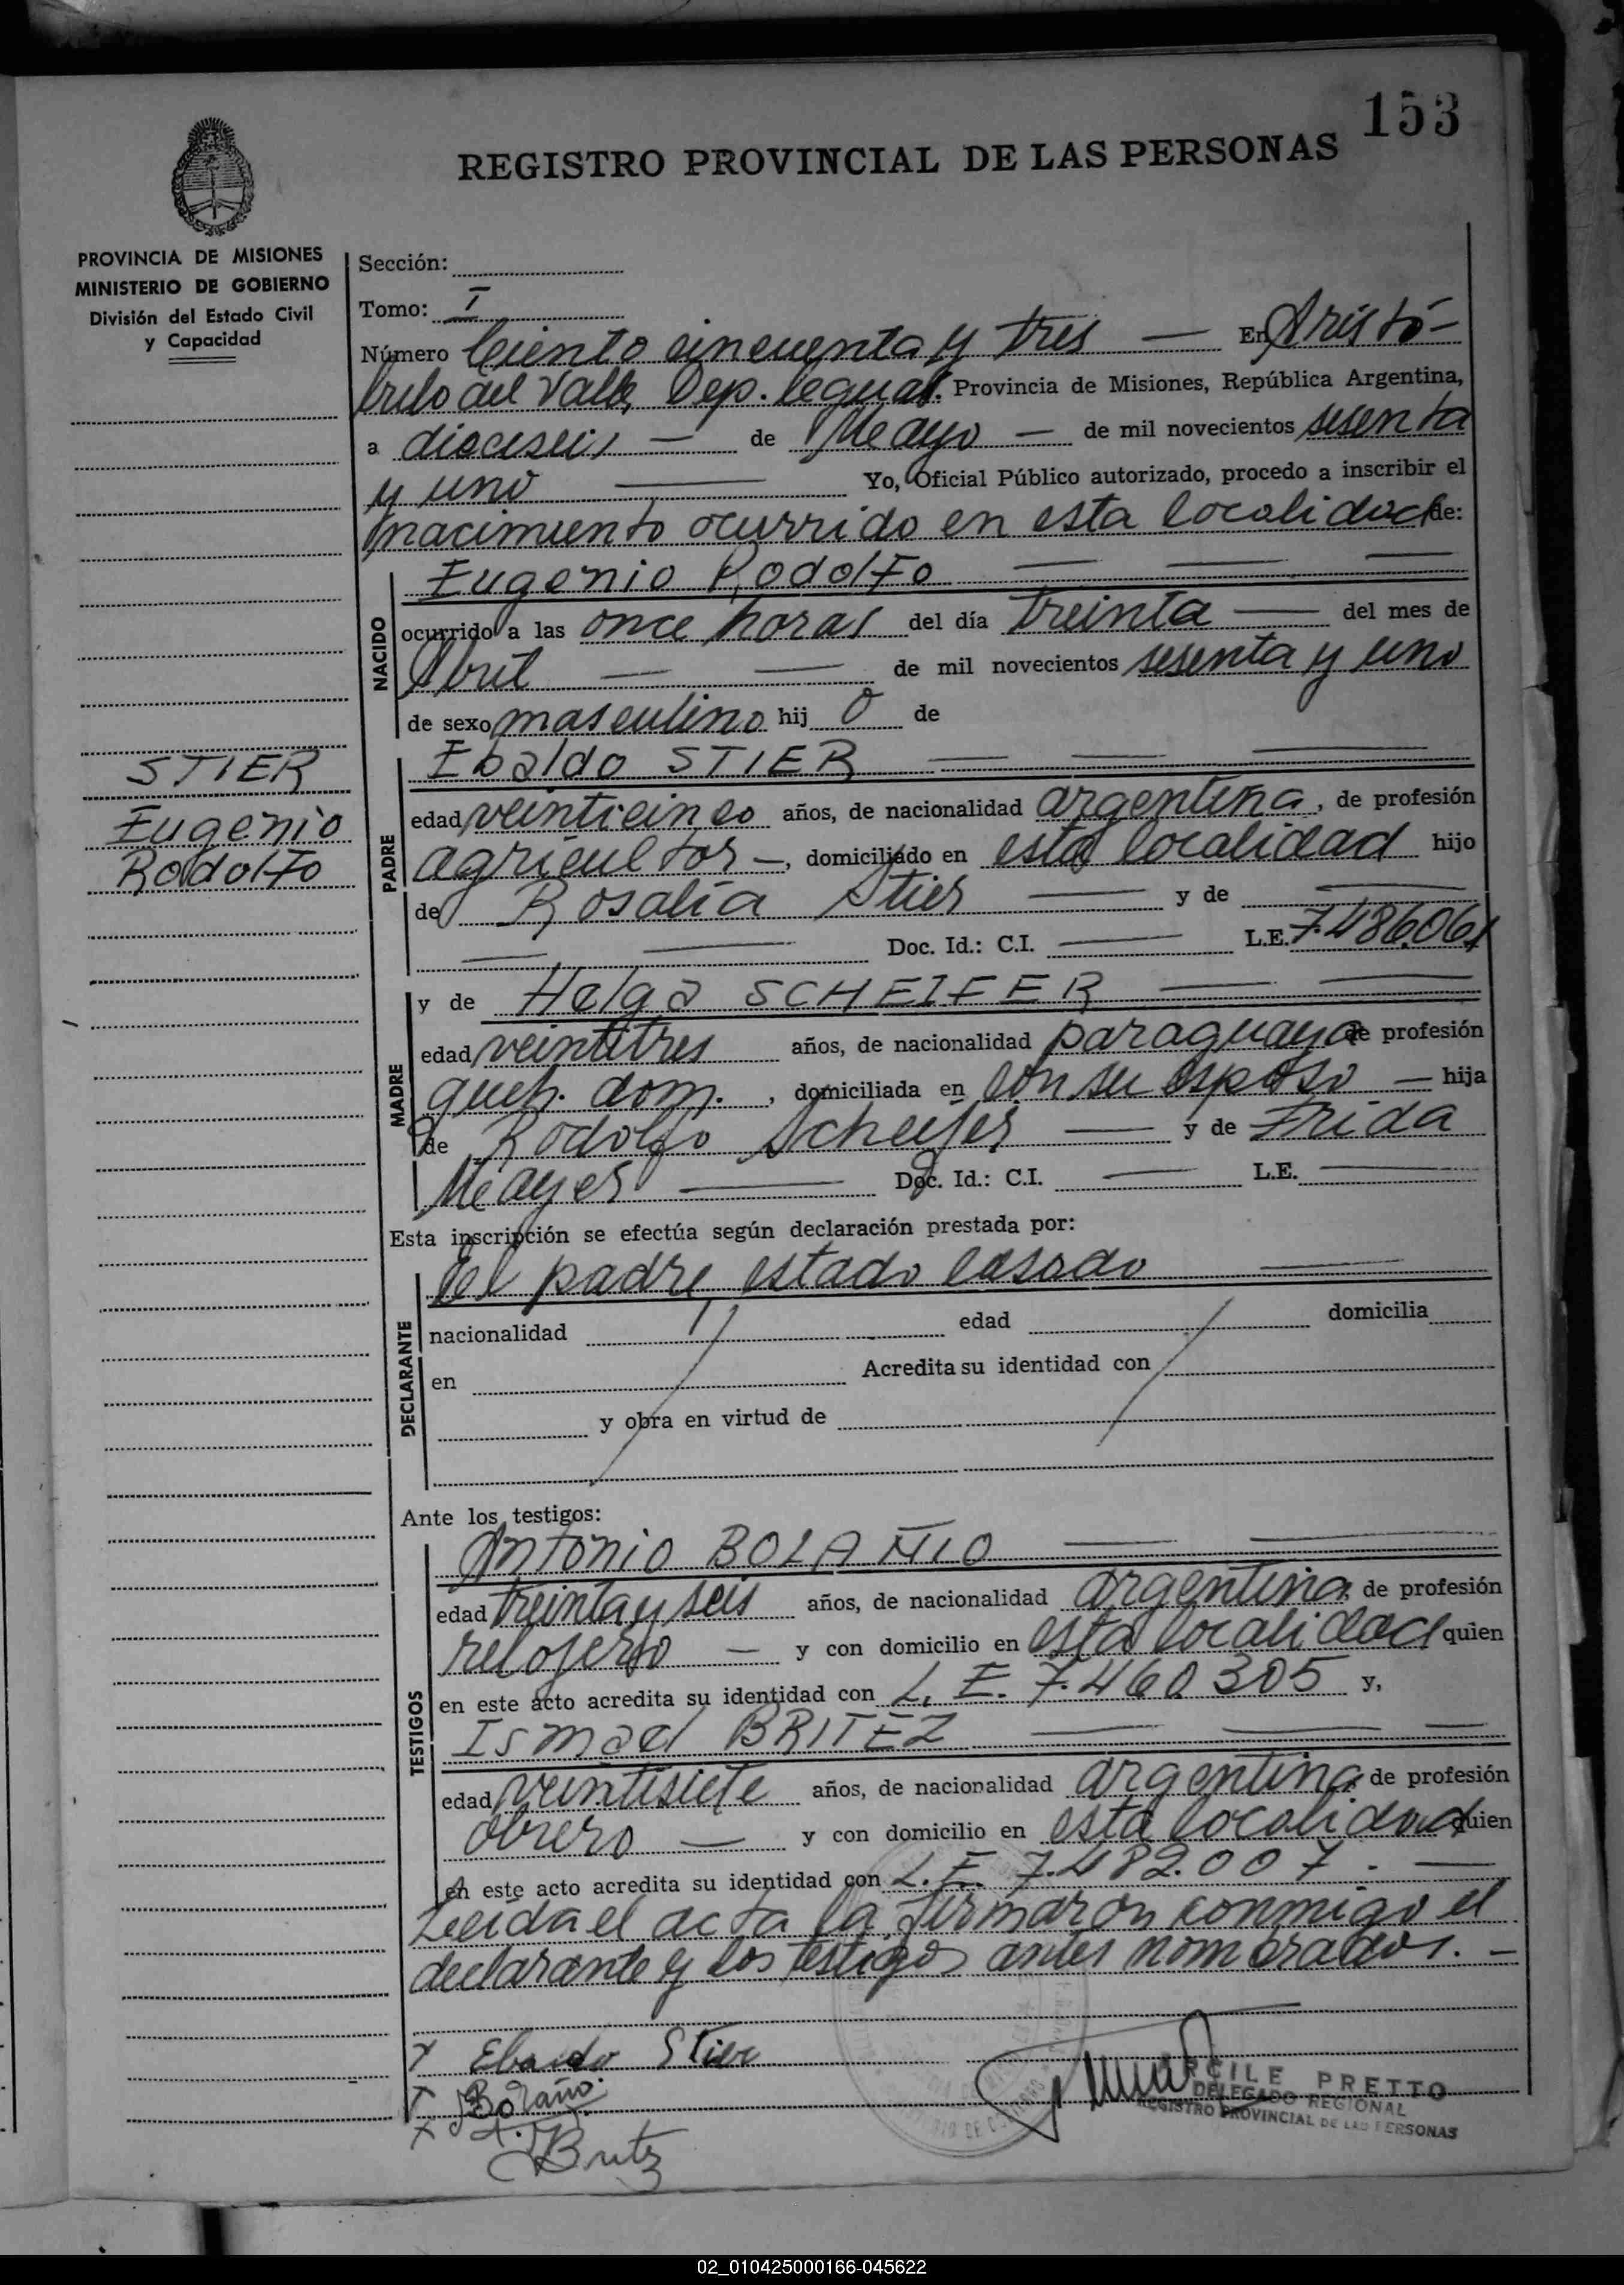 153
REGISTRO PROVINCIAL DE LAS PERSONAS
PROVINCIA DE MISIONES
MINISTERIO DE GOBIERNO
División del Estado Civil
y Capacidad
STIER
Eugenio
Rodolfo
Sección:
Tomo: I
Número Ciento cincuenta y tres — En Aristó-
bulo del Valle, Dep. Caguas. Provincia de Misiones, República Argentina,
a dieciseis — de Mayo — de mil novecientos sesenta
y uno — Yo, Oficial Público autorizado, procedo a inscribir el
nacimiento ocurrido en esta localidad de:
NACIDO
Eugenio Rodolfo — — —
ocurrido a las once horas del día treinta — del mes de
Abril — — de mil novecientos sesenta y uno
de sexo masculino hij o de
PADRE
Ebaldo STIER — — —
edad veinticinco años, de nacionalidad argentina, de profesión
agricultor —, domiciliado en esta localidad hijo
de Rosalía Stier — y de —
— — Doc. Id.: C.I. — L.E. 7.486.061
MADRE
y de Helga SCHEIFER — —
edad veintitres años, de nacionalidad paraguaya de profesión
queh. dom. , domiciliada en con su esposo — hija
de Rodolfo Scheifer — y de Frida
Mayer — Doc. Id.: C.I. — L.E. —
Esta inscripción se efectúa según declaración prestada por:
DECLARANTE
El padre estado casado —
nacionalidad edad domicilia
en Acredita su identidad con
y obra en virtud de
Ante los testigos:
TESTIGOS
Antonio BOLAÑIO — —
edad treinta y seis años, de nacionalidad argentina de profesión
relojero — y con domicilio en esta localidad quien
en este acto acredita su identidad con L. E. 7.460.305 y,
Ismael BRITEZ — — —
edad veintisiete años, de nacionalidad argentina de profesión
obrero — y con domicilio en esta localidad quien
en este acto acredita su identidad con L. E. 7.482.007. —
Leida el acta la firmaron conmigo el
declarante y los testigos antes nombrados. —
x Ebaldo Stier
x Bolaño.
x Britz
ARCILE PRETTO
DELEGADO REGIONAL
REGISTRO PROVINCIAL DE LAS PERSONAS
02_010425000166-045622